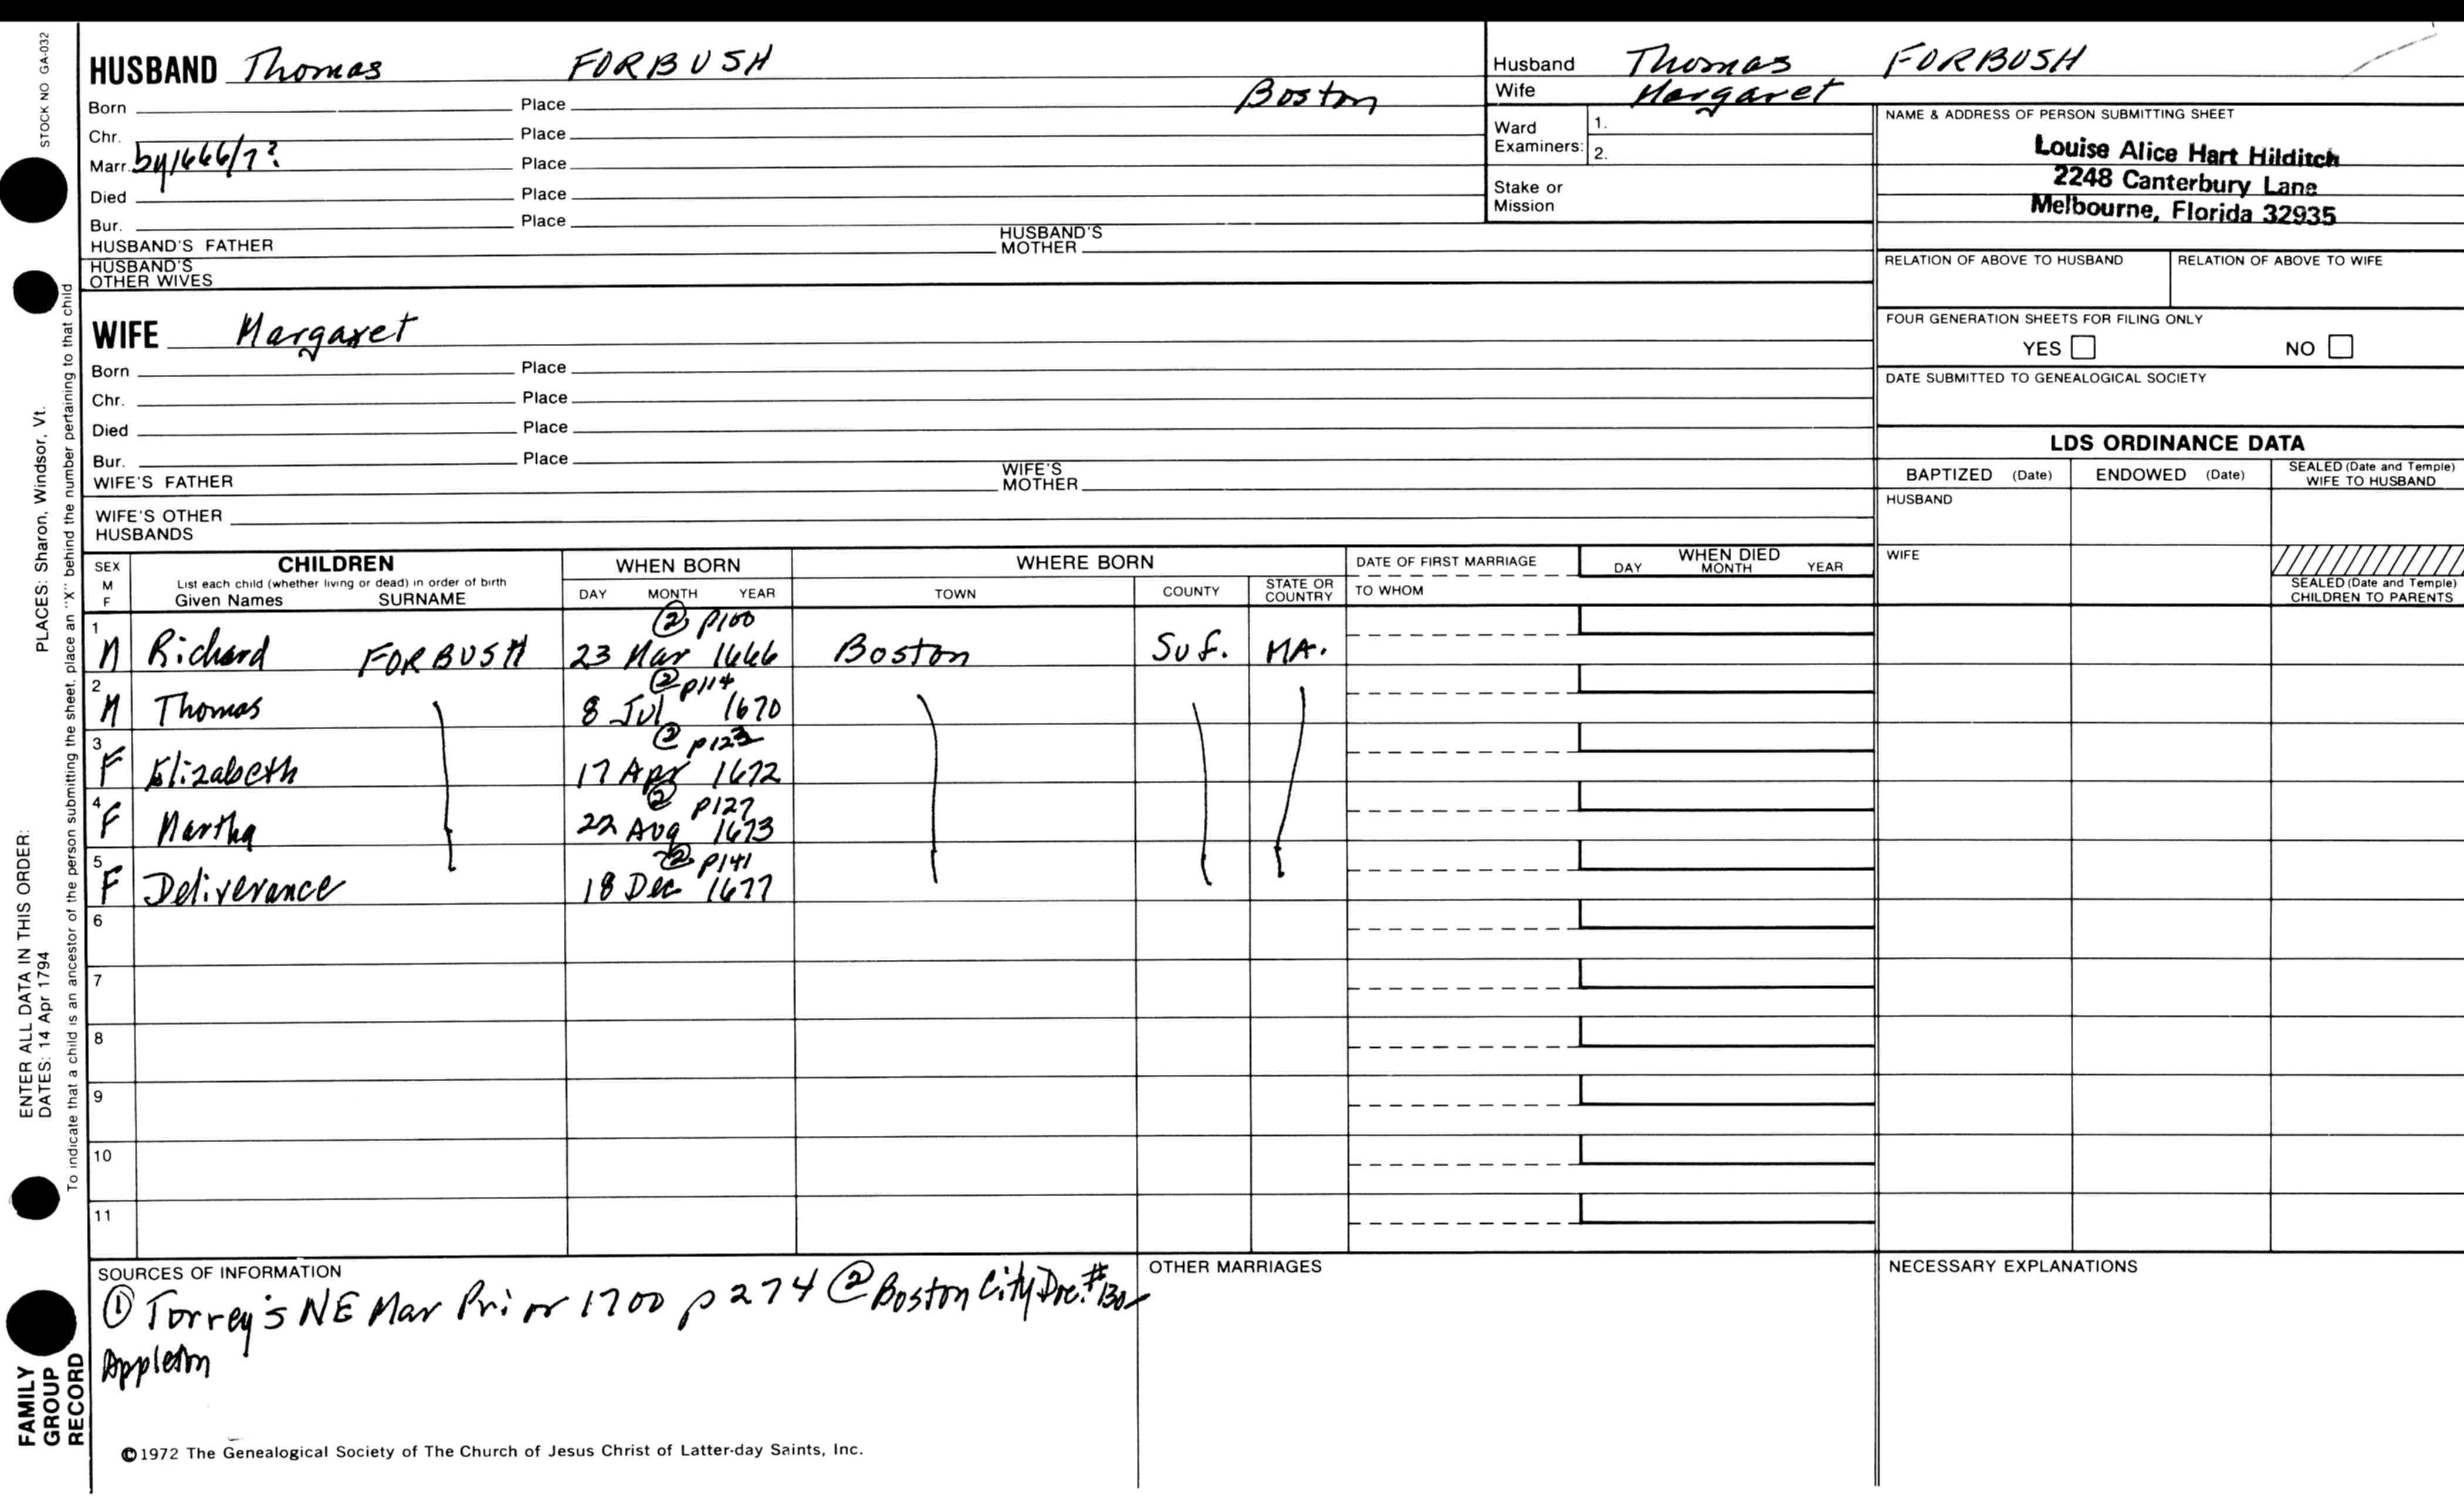 STOCK NO GA-032
PLACES: Sharon, Windsor, Vt.
ENTER ALL DATA IN THIS ORDER:
DATES: 14 Apr 1794
To indicate that a child is an ancestor of the person submitting the sheet, place an "X" behind the number pertaining to that child
FAMILY
GROUP
RECORD
HUSBAND Thomas FORBUSH
Born Place Boston
Chr. Place
Marr. by 1666/7? Place
Died Place
Bur. Place
HUSBAND'S FATHER HUSBAND'S MOTHER
HUSBAND'S
OTHER WIVES
WIFE Margaret
Born Place
Chr. Place
Died Place
Bur. Place
WIFE'S FATHER WIFE'S MOTHER
WIFE'S OTHER
HUSBANDS
Husband Thomas FORBUSH
Wife Margaret
Ward
Examiners:
1.
2.
Stake or
Mission
NAME & ADDRESS OF PERSON SUBMITTING SHEET
Louise Alice Hart Hilditch
2248 Canterbury Lane
Melbourne, Florida 32935
RELATION OF ABOVE TO HUSBAND RELATION OF ABOVE TO WIFE
FOUR GENERATION SHEETS FOR FILING ONLY
YES NO
DATE SUBMITTED TO GENEALOGICAL SOCIETY
LDS ORDINANCE DATA
BAPTIZED (Date) ENDOWED (Date) SEALED (Date and Temple)
WIFE TO HUSBAND
HUSBAND
WIFE
SEALED (Date and Temple)
CHILDREN TO PARENTS
SEX
M
F
CHILDREN
List each child (whether living or dead) in order of birth
Given Names SURNAME
WHEN BORN
DAY MONTH YEAR
WHERE BORN
TOWN COUNTY STATE OR
COUNTRY
DATE OF FIRST MARRIAGE
TO WHOM
WHEN DIED
DAY MONTH YEAR
② p100
1 M Richard FORBUSH 23 Mar 1666 Boston Suf. MA.
② p114
2 M Thomas 8 Jul 1670
② p123
3 F Elizabeth 17 Apr 1672
② p127
4 F Martha 22 Aug 1673
② p141
5 F Deliverance 18 Dec 1677
6
7
8
9
10
11
SOURCES OF INFORMATION
① Torrey's NE Mar Prior 1700 p 274 ② Boston City Doc. #130-
Appleton
OTHER MARRIAGES
NECESSARY EXPLANATIONS
©1972 The Genealogical Society of The Church of Jesus Christ of Latter-day Saints, Inc.